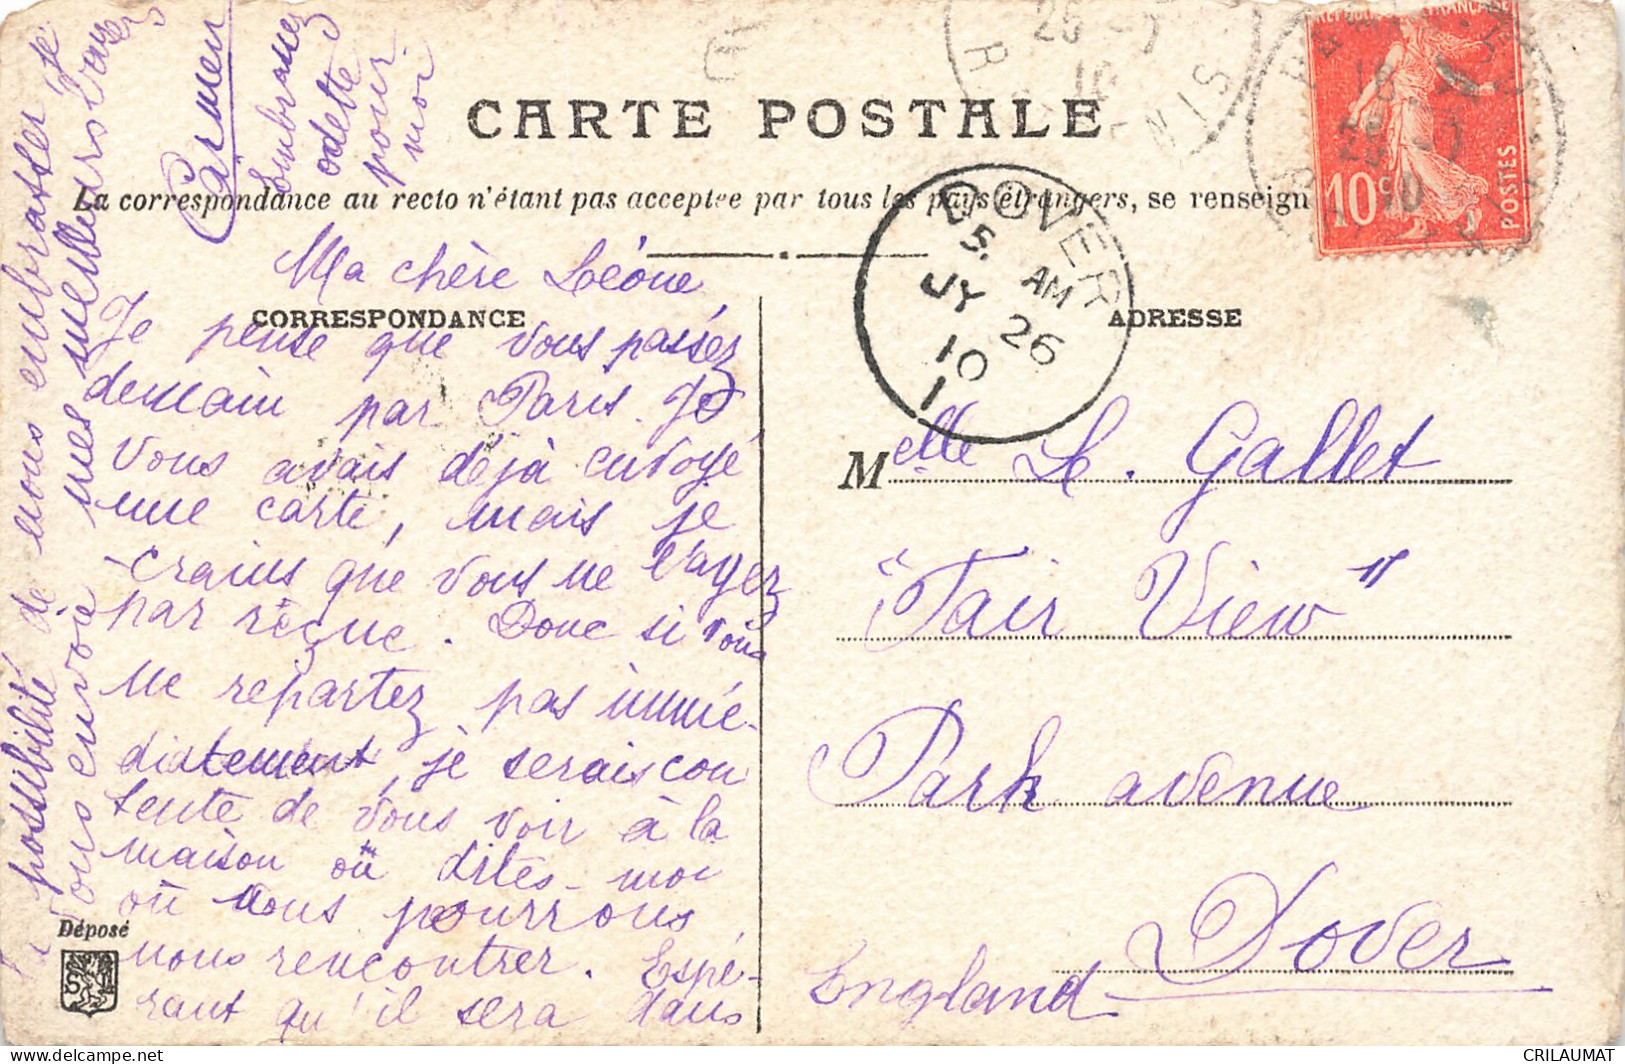 CARTE POSTALE
La correspondance au recto n'étant pas acceptée par tous les pays étrangers, se renseign
CORRESPONDANCE
ADRESSE
RÉPUBLIQUE FRANÇAISE
10c
POSTES
DOVER
5. AM
JY 26
10
1
Ma chère Léone,
Je pense que vous passez
demain par Paris. Je
vous avais déjà envoyé
une carte, mais je
crains que vous ne l'ayez
pas reçue. Donc si vous
ne repartez pas immé-
diatement, je serais con
tente de vous voir à la
maison où dites-moi
où nous pourrons
nous rencontrer. Espé-
rant qu'il sera dans
possibilité de nous embrasser je
vous envoie mes meilleurs baisers
Carmen
Embrassez
Odette
pour
moi
Melle Le Gallet
"Fair View"
Park avenue
Dover
England
Déposé
CRILAUMAT